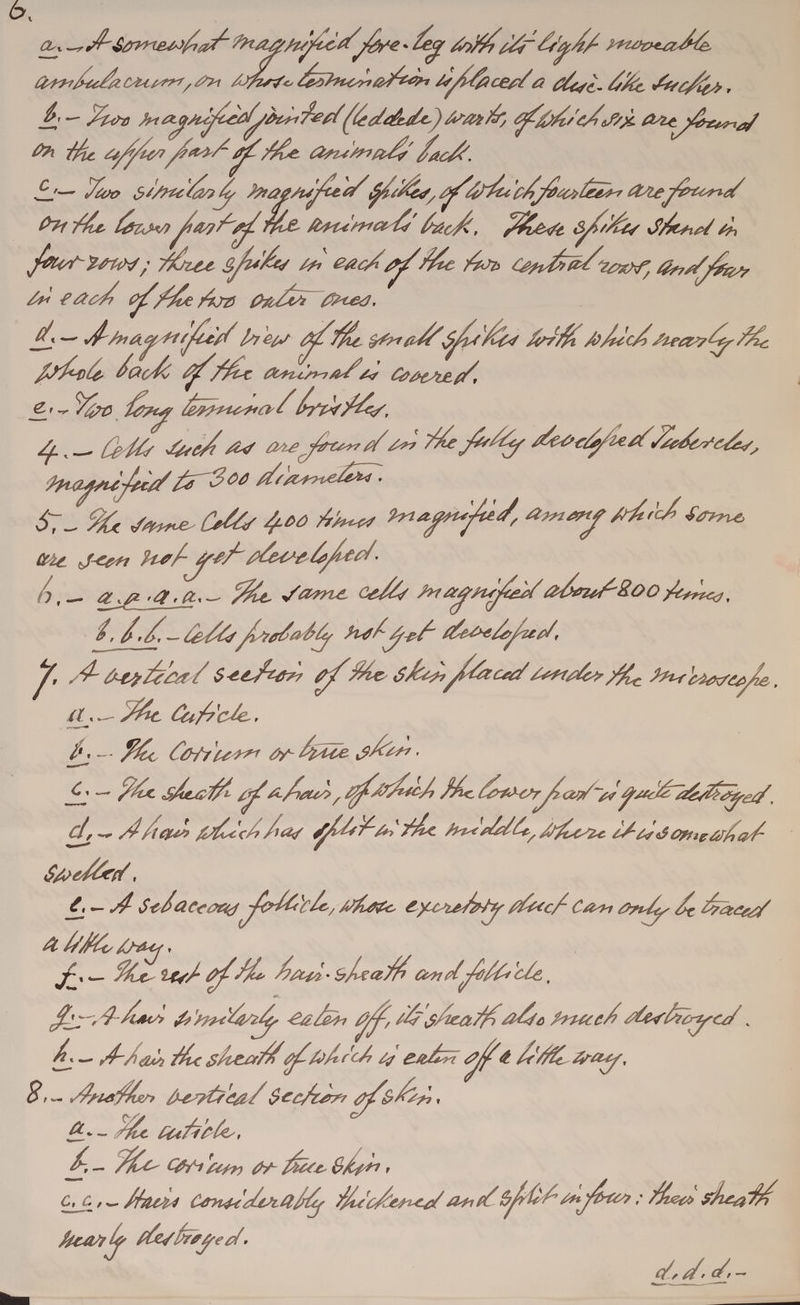 6.
a. — A somewhat magnified fore-leg with its light moveable
ambulacrum, on whose termination is placed a disc-like sucker.
b. — Two magnified jointed (leddede) warts, of which six are found
on the upper part of the animals back.
c. — Two similarly magnified spikes, of which fourteen are found
on the lower part of the animals back. These spikes stand in
four rows; three spikes in each of the two central rows, and four
in each of the two outer ones.
d. — A magnified view of the small spikes with which nearly the
whole back of the animal is covered.
e. — Two long terminal bristles.
4. — Cells such as are found in the fully developed Tubercles,
magnified to 300 diameters.
5. — The same Cells 400 times magnified, among which some
are seen not yet developed.
6. — a.a.a.a. — The same cells magnified about 800 times.
b.b.b. — Cells probably not yet developed.
7. A vertical section of the skin placed under the microscope.
a. — The Cuticle.
b. — The Corium or true skin.
c. — The sheath of a hair, of which the lower part is quite destroyed.
d. — A hair which has split in the middle, where it is somewhat
swelled.
e. — A Sebaceous follicle, whose excretory duct can only be traced
a little way.
f. — The rest of the hair-sheath and follicle.
g. — A hair similarly eaten off, its sheath also much destroyed.
h. — A hair the sheath of which is eaten off a little way.
8. — Another vertical section of skin.
a. — The cuticle.
b. — The corium or true skin.
c. c. — Hairs considerably thickened and split in four: their sheath
nearly destroyed.
d. d. d. —